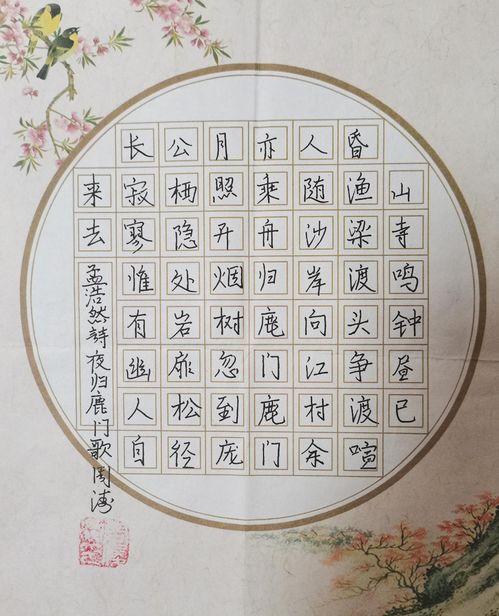 山寺鸣钟昼已
昏渔梁渡头争渡喧
人随沙岸向江村余
亦乘舟归鹿门鹿门
月照开烟树忽到庞
公栖隐处岩扉松径
长寂寥惟有幽人自
来去
孟浩然詩夜归鹿门歌周涛